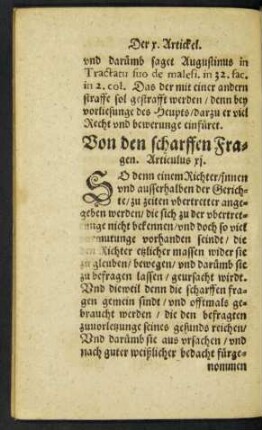 Der x. Artickel.
vnd darümb saget Augustinus in
Tractatu suo de malefi. in 32. fac.
in 2. col. Das der mit einer andern
straffe sol gestrafft werden / denn bey
vorliesunge des Heupts / darzu er viel
Recht vnd bewerunge einfüret.
Von den scharffen Fra-
gen. Articulus xj.
SO denn einem Richter / Innen
vnd ausserhalben der Gerich-
te / zu zeiten vbertretter ange-
geben werden / die sich zu der vbertret-
unge nicht bekennen / vnd doch so viel
vormutunge vorhanden seindt / die
den Richter etzlicher massen wider sie
zu gleuben / bewegen / vnd darümb sie
zu befragen lassen / geursacht wirdt.
Vnd dieweil denn die scharffen fra-
gen gemein sindt / vnd offtmals ge-
braucht werden / die den befragten
zuuorletzunge seines gesunds reichen /
Vnd darümb sie aus vrsachen / vnd
nach guter weißlicher bedacht fürge-
nommen